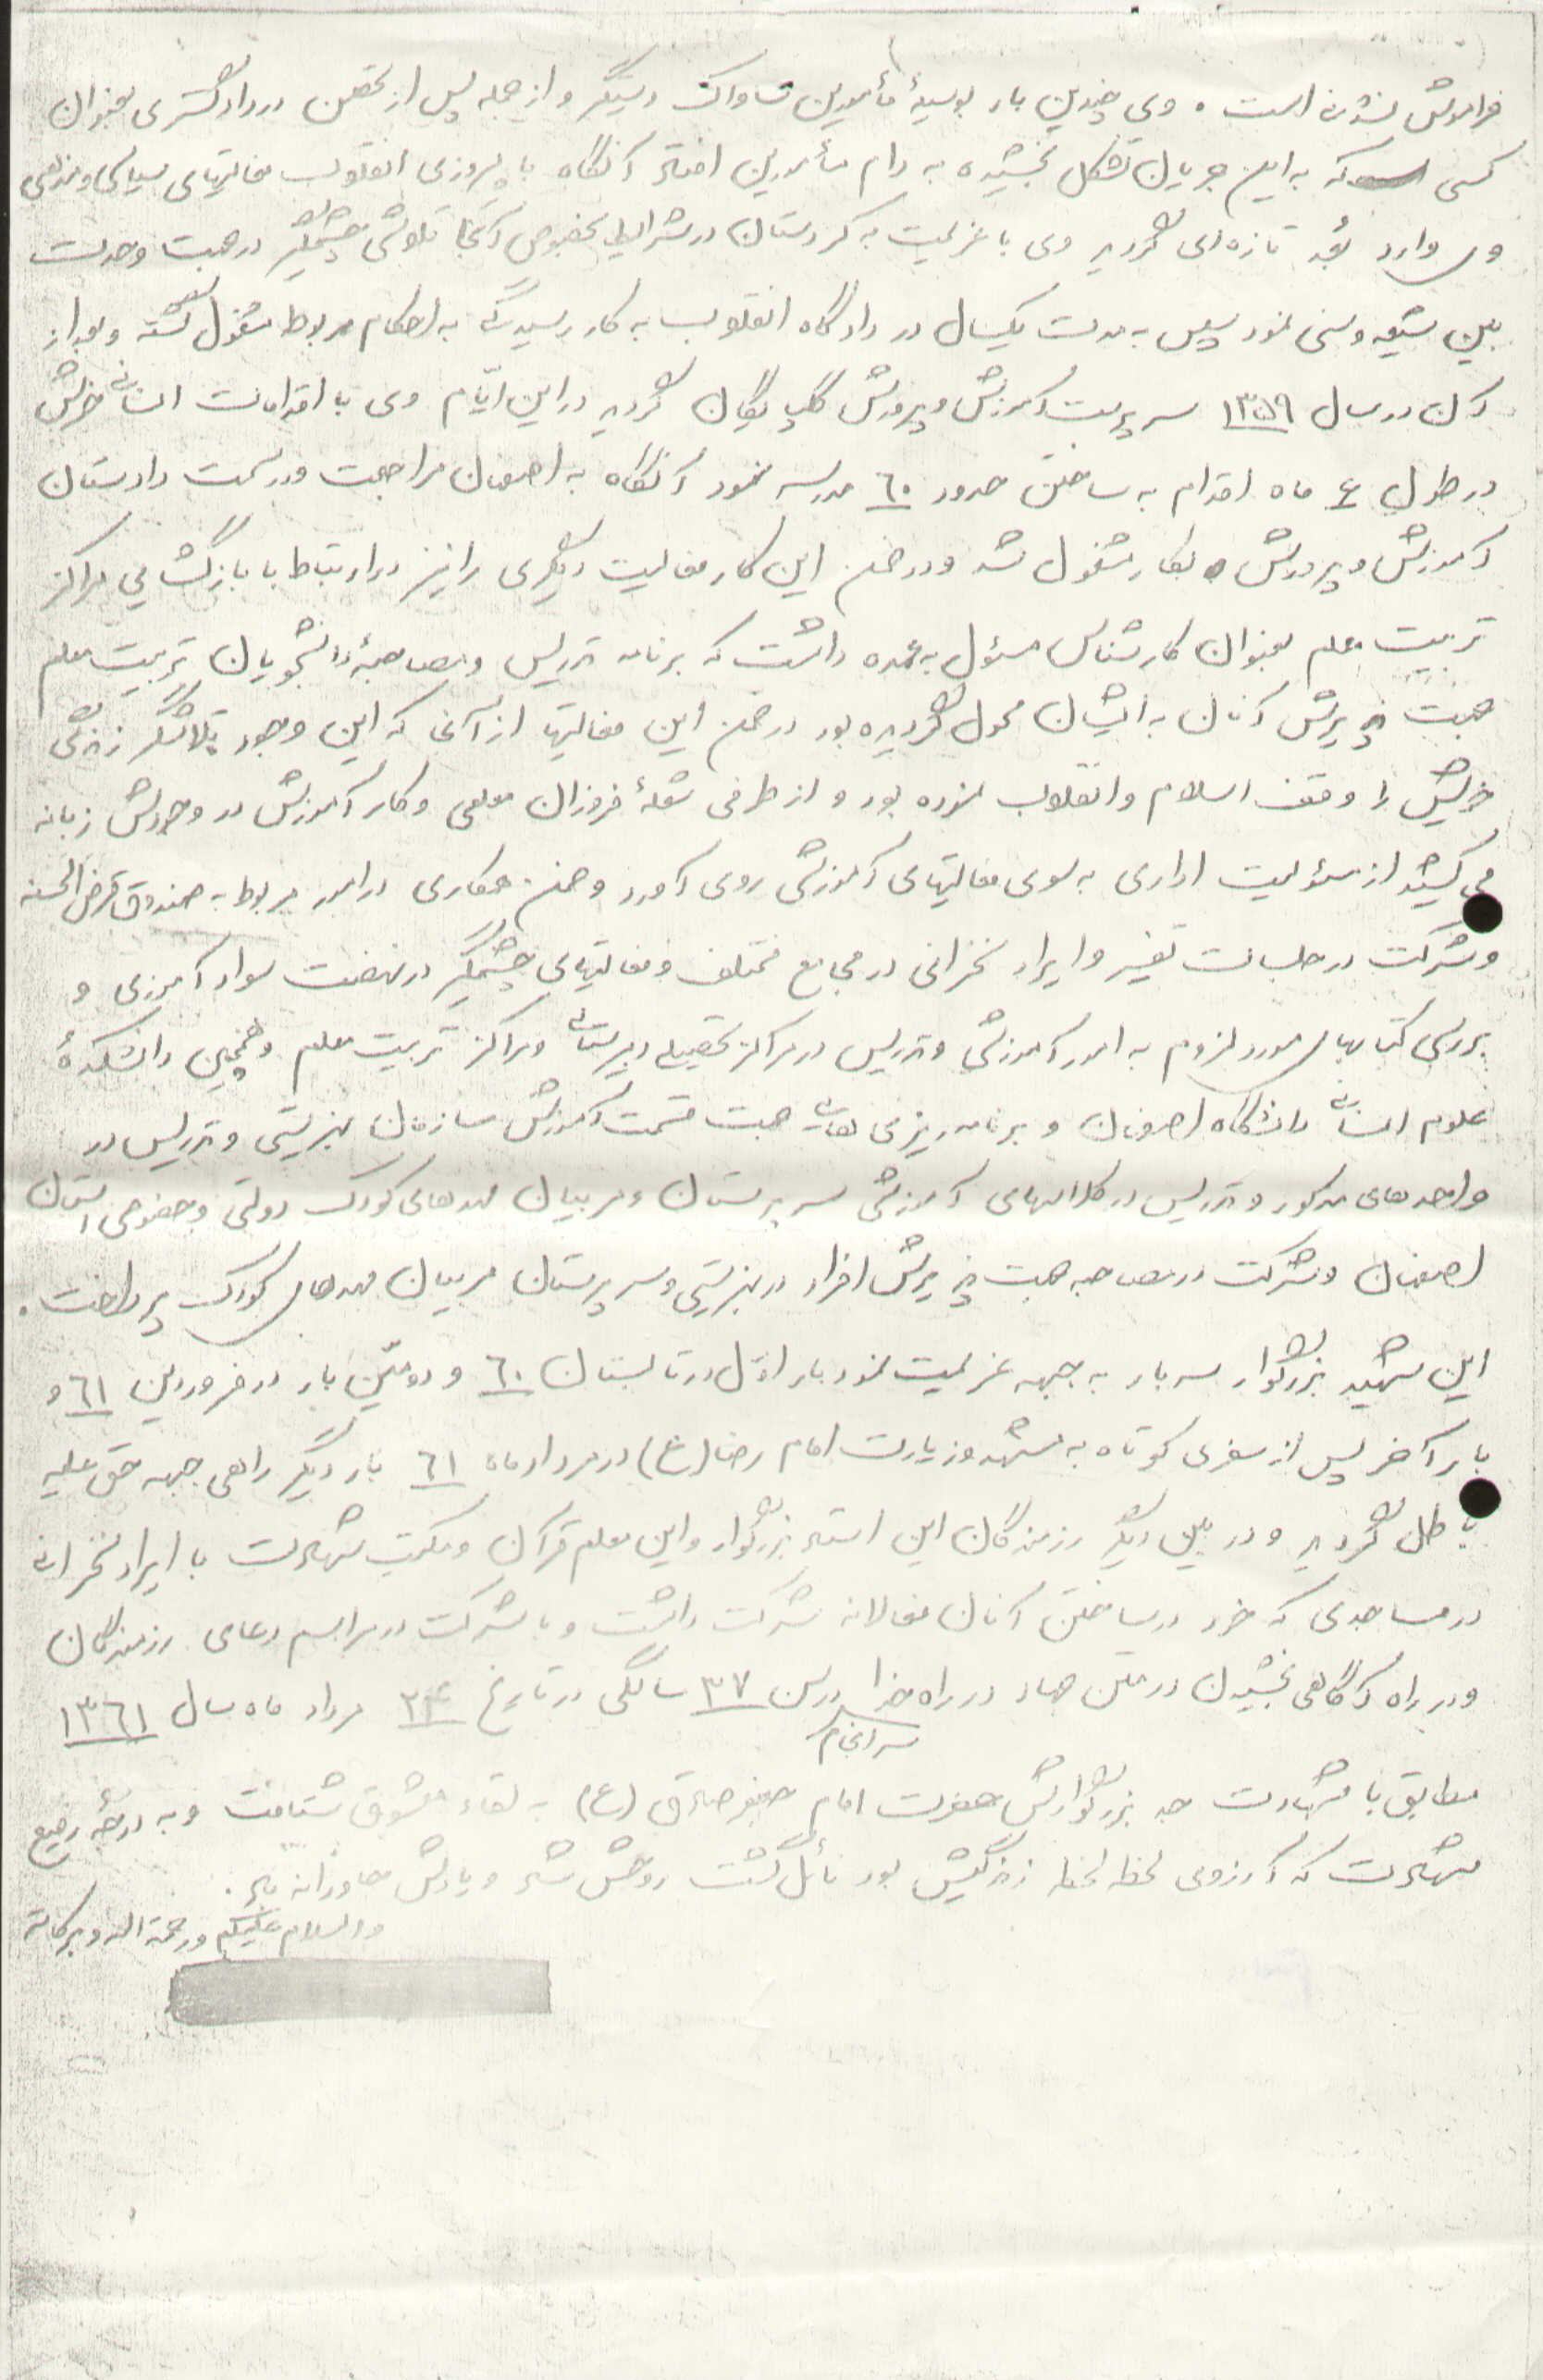 فراموش نشدنی است . وی چندین بار بوسیلهٔ مأمورین ساواک دستگیر و از جمله پس از تحصن در دادگستری بعنوان
کسی که به این جریان تشکل بخشیده به دام مأمورین افتاد آنگاه با پیروزی انقلاب فعالیتهای سیاسی و مذهبی
وی وارد بُعد تازه‌ای گردید وی با عزیمت به کردستان در شرایط بخصوص آنجا تلاشی چشمگیر در جهت وحدت
بین شیعه و سنی نمود سپس به مدت یکسال در دادگاه انقلاب به کار رسیدگی به احکام مربوط مشغول گشته و بعد از
آن در سال ۱۳۵۹ سرپرست آموزش و پرورش گلپایگان گردید در این ایّام وی با اقدامات انسانی خویش
در طول ٤ ماه اقدام به ساختن حدود ٦٠ مدرسه نمود آنگاه به اصفهان مراجعت و در سمت دادستان
آموزش و پرورش بکار مشغول شد و در ضمن این کار فعالیت دیگری را نیز در ارتباط با بازگشایی مراکز
تربیت معلم بعنوان کارشناس مسئول به عهده داشت که برنامه تدریس و مصاحبهٔ دانشجویان تربیت معلم
جهت پذیرش آنان به ایشان محول گردیده بود در ضمن این فعالیتها از آنجا که این وجود تلاشگر زندگی
خویش را وقف اسلام و انقلاب نموده بود و از طرفی شعلهٔ فروزان معلمی و کار آموزش در وجودش زبانه
می کشید از مسئولیت اداری به سوی فعالیتهای آموزشی روی آورد و ضمن همکاری در امور مربوط به صندوق قرض الحسنه
و شرکت در جلسات تفسیر و ایراد سخنرانی در مجامع مختلف و فعالیتهای چشمگیر در نهضت سواد آموزی و
بررسی کتابهای مورد لزوم به امور آموزشی و تدریس در مراکز تحصیلی دبیرستانی و مراکز تربیت معلم و همچنین دانشکدهٔ
علوم انسانی دانشگاه اصفهان و برنامه ریزی هایی جهت قسمت آموزش سازمان بهزیستی و تدریس در
واحدهای مذکور و تدریس در کلاسهای آموزشی سرپرستان و مربیان مهدهای کودک دولتی و خصوصی استان
اصفهان و شرکت در مصاحبه جهت پذیرش افراد در بهزیستی و سرپرستان مربیان مهدهای کودک پرداخت .
این شهید بزرگوار سه بار به جبهه عزیمت نمود بار اوّل در تابستان ٦٠ و دومین بار در فروردین ٦١ و
بار آخر پس از سفری کوتاه به مشهد و زیارت امام رضا (ع) در مرداد ماه ٦١ بار دیگر راهی جبهه حق علیه
باطل گردید و در بین دیگر رزمندگان این استاد بزرگوار و این معلم قرآن و مکتب شهادت با ایراد سخنرانی
در مساجدی که خود در ساختن آنان فعالانه شرکت داشت و با شرکت در مراسم دعای رزمندگان
و در راه آگاهی بخشیدن در متن جهاد در راه خدا سرانجام در سن ۳۷ سالگی در تاریخ ۲۴ مرداد ماه سال ۱۳٦۱
مطابق با شهادت جد بزرگوارش حضرت امام جعفر صادق (ع) به لقاء معشوق شتافت و به درجهٔ رفیع
شهادت که آرزوی لحظه لحظه زندگیش بود نائل گشت روحش شاد و یادش جاودانه باد .
والسلام علیکم و رحمة الله و برکاته